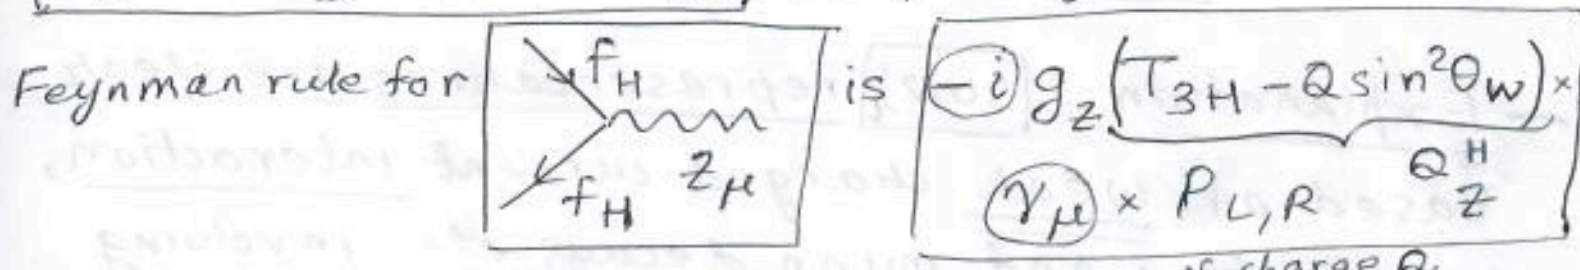 Feynman rule for f_H f_H Z_μ is -i g_Z (T_{3H} - Q sin²θ_W) ×
Q_Z^H
γ_μ × P_{L,R}
is charge Q